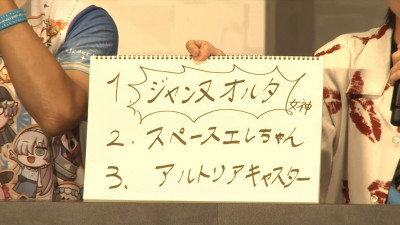 1 ジャンヌオルタ 女神
2. スペースエレちゃん
3. アルトリアキャスター